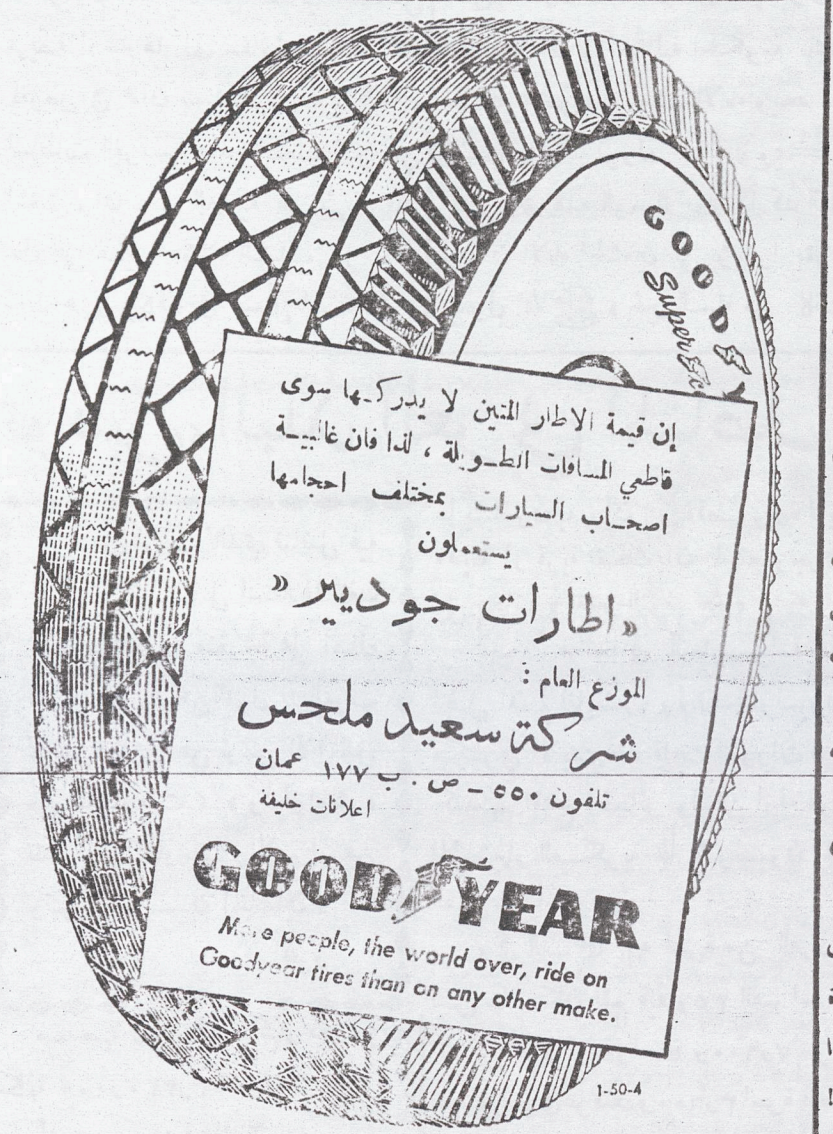 GOODY
Super
إن قيمة الاطار المتين لا يدركها سوى
قاطعي المسافات الطويلة ، لذا فان غالبية
اصحاب السيارات بمختلف احجامها
يستعملون
«اطارات جوديير»
الموزع العام :
شركة سعيد ملحس
تلفون ٥٥٠ - ص . ب ١٧٧ عمان
اعلانات خليفة
GOODYEAR
More people, the world over, ride on
Goodyear tires than on any other make.
1-50-4